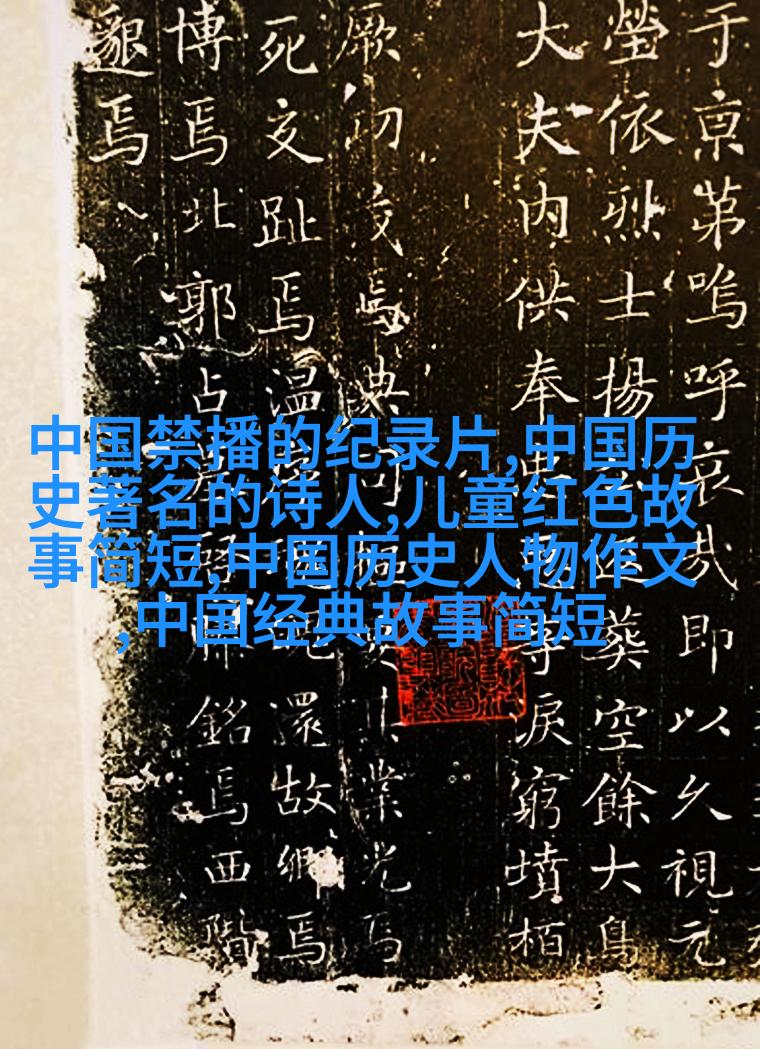 中国禁播的纪录片,中国历
史著名的诗人,儿童红色故
事简短,中国历史人物作文
,中国经典故事简短
于京第嗚呼哀哉即以久視元
塋依烈士揚葬空餘大鳥
大夫内供奉淚窮墳栢
厥功茂焉典司業光焉
死交趾焉温還故鄉焉
博焉北郭占銘焉西階
邈焉